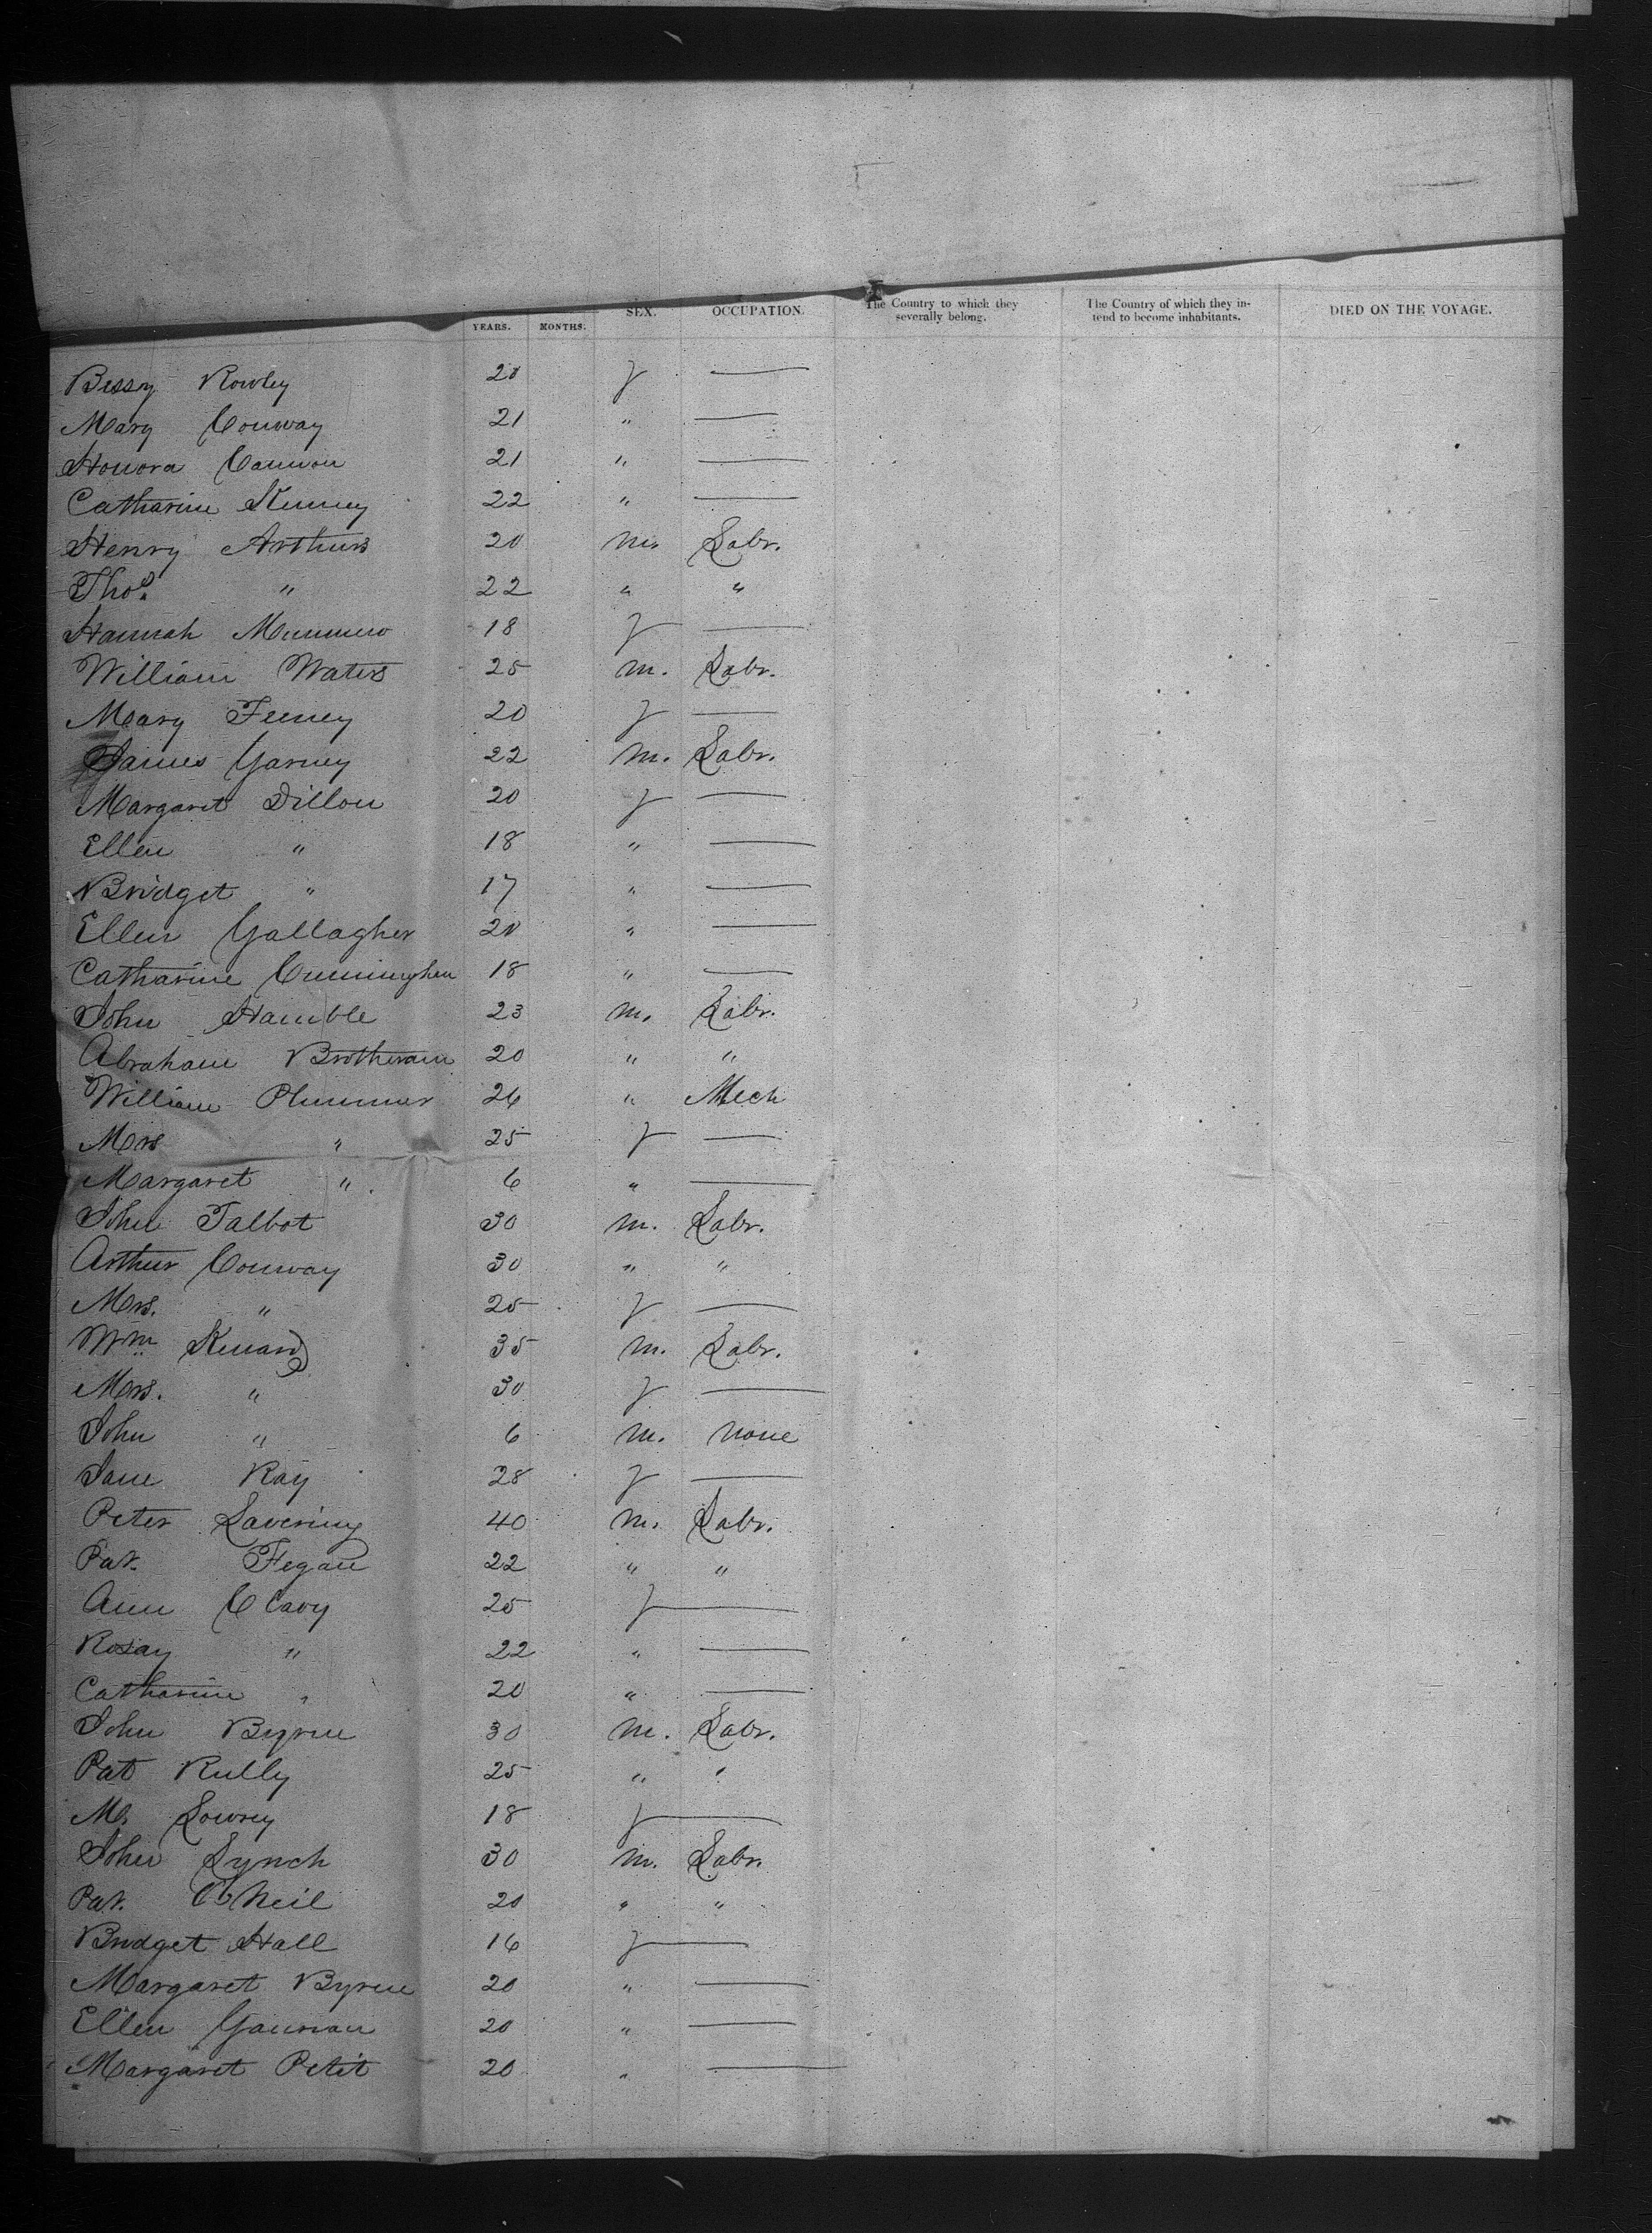 YEARS. MONTHS. SEX. OCCUPATION. The Country to which they severally belong. The Country of which they in- tend to become inhabitants. DIED ON THE VOYAGE.
Bessy Rowley 20 f —
Mary Conway 21 " —
Honora Cannon 21 " —
Catharine Kenney 22 " —
Henry Arthurs 20 m. Labr.
Thos. " 22 " "
Hannah 18 f —
William Waters 25 m. Labr.
Mary Feeney 20 f —
James Garney 22 m. Labr.
Margaret Dillon 20 f —
Ellen " 18 " —
Bridget " 17 " —
Ellen Gallagher 20 " —
Catharine Cunningham 18 " —
John Hamble 23 m. Labr.
Abraham Brotheram 20 " "
William Plummer 26 " Mech
Mrs " 25 f —
Margaret " 6 " —
John Talbot 30 m. Labr.
Arthur Conway 30 " "
Mrs. " 25 f —
Wm Kenard 35 m. Labr.
Mrs. " 30 f —
John " 6 m. none
Jane Ray 28 f —
Peter Lavering 40 m. Labr.
Pat. Fegan 22 " "
Ann Clavy 25 f —
Rosay " 22 " —
Catharine " 20 " —
John Byrne 30 m. Labr.
Pat Rully 25 " "
M. Lowry 18 f —
John Lynch 30 m. Labr.
Pat. O'Neil 20 " "
Bridget Hall 16 f —
Margaret Byrne 20 " —
Ellen Gannan 20 " —
Margaret Petit 20 " —